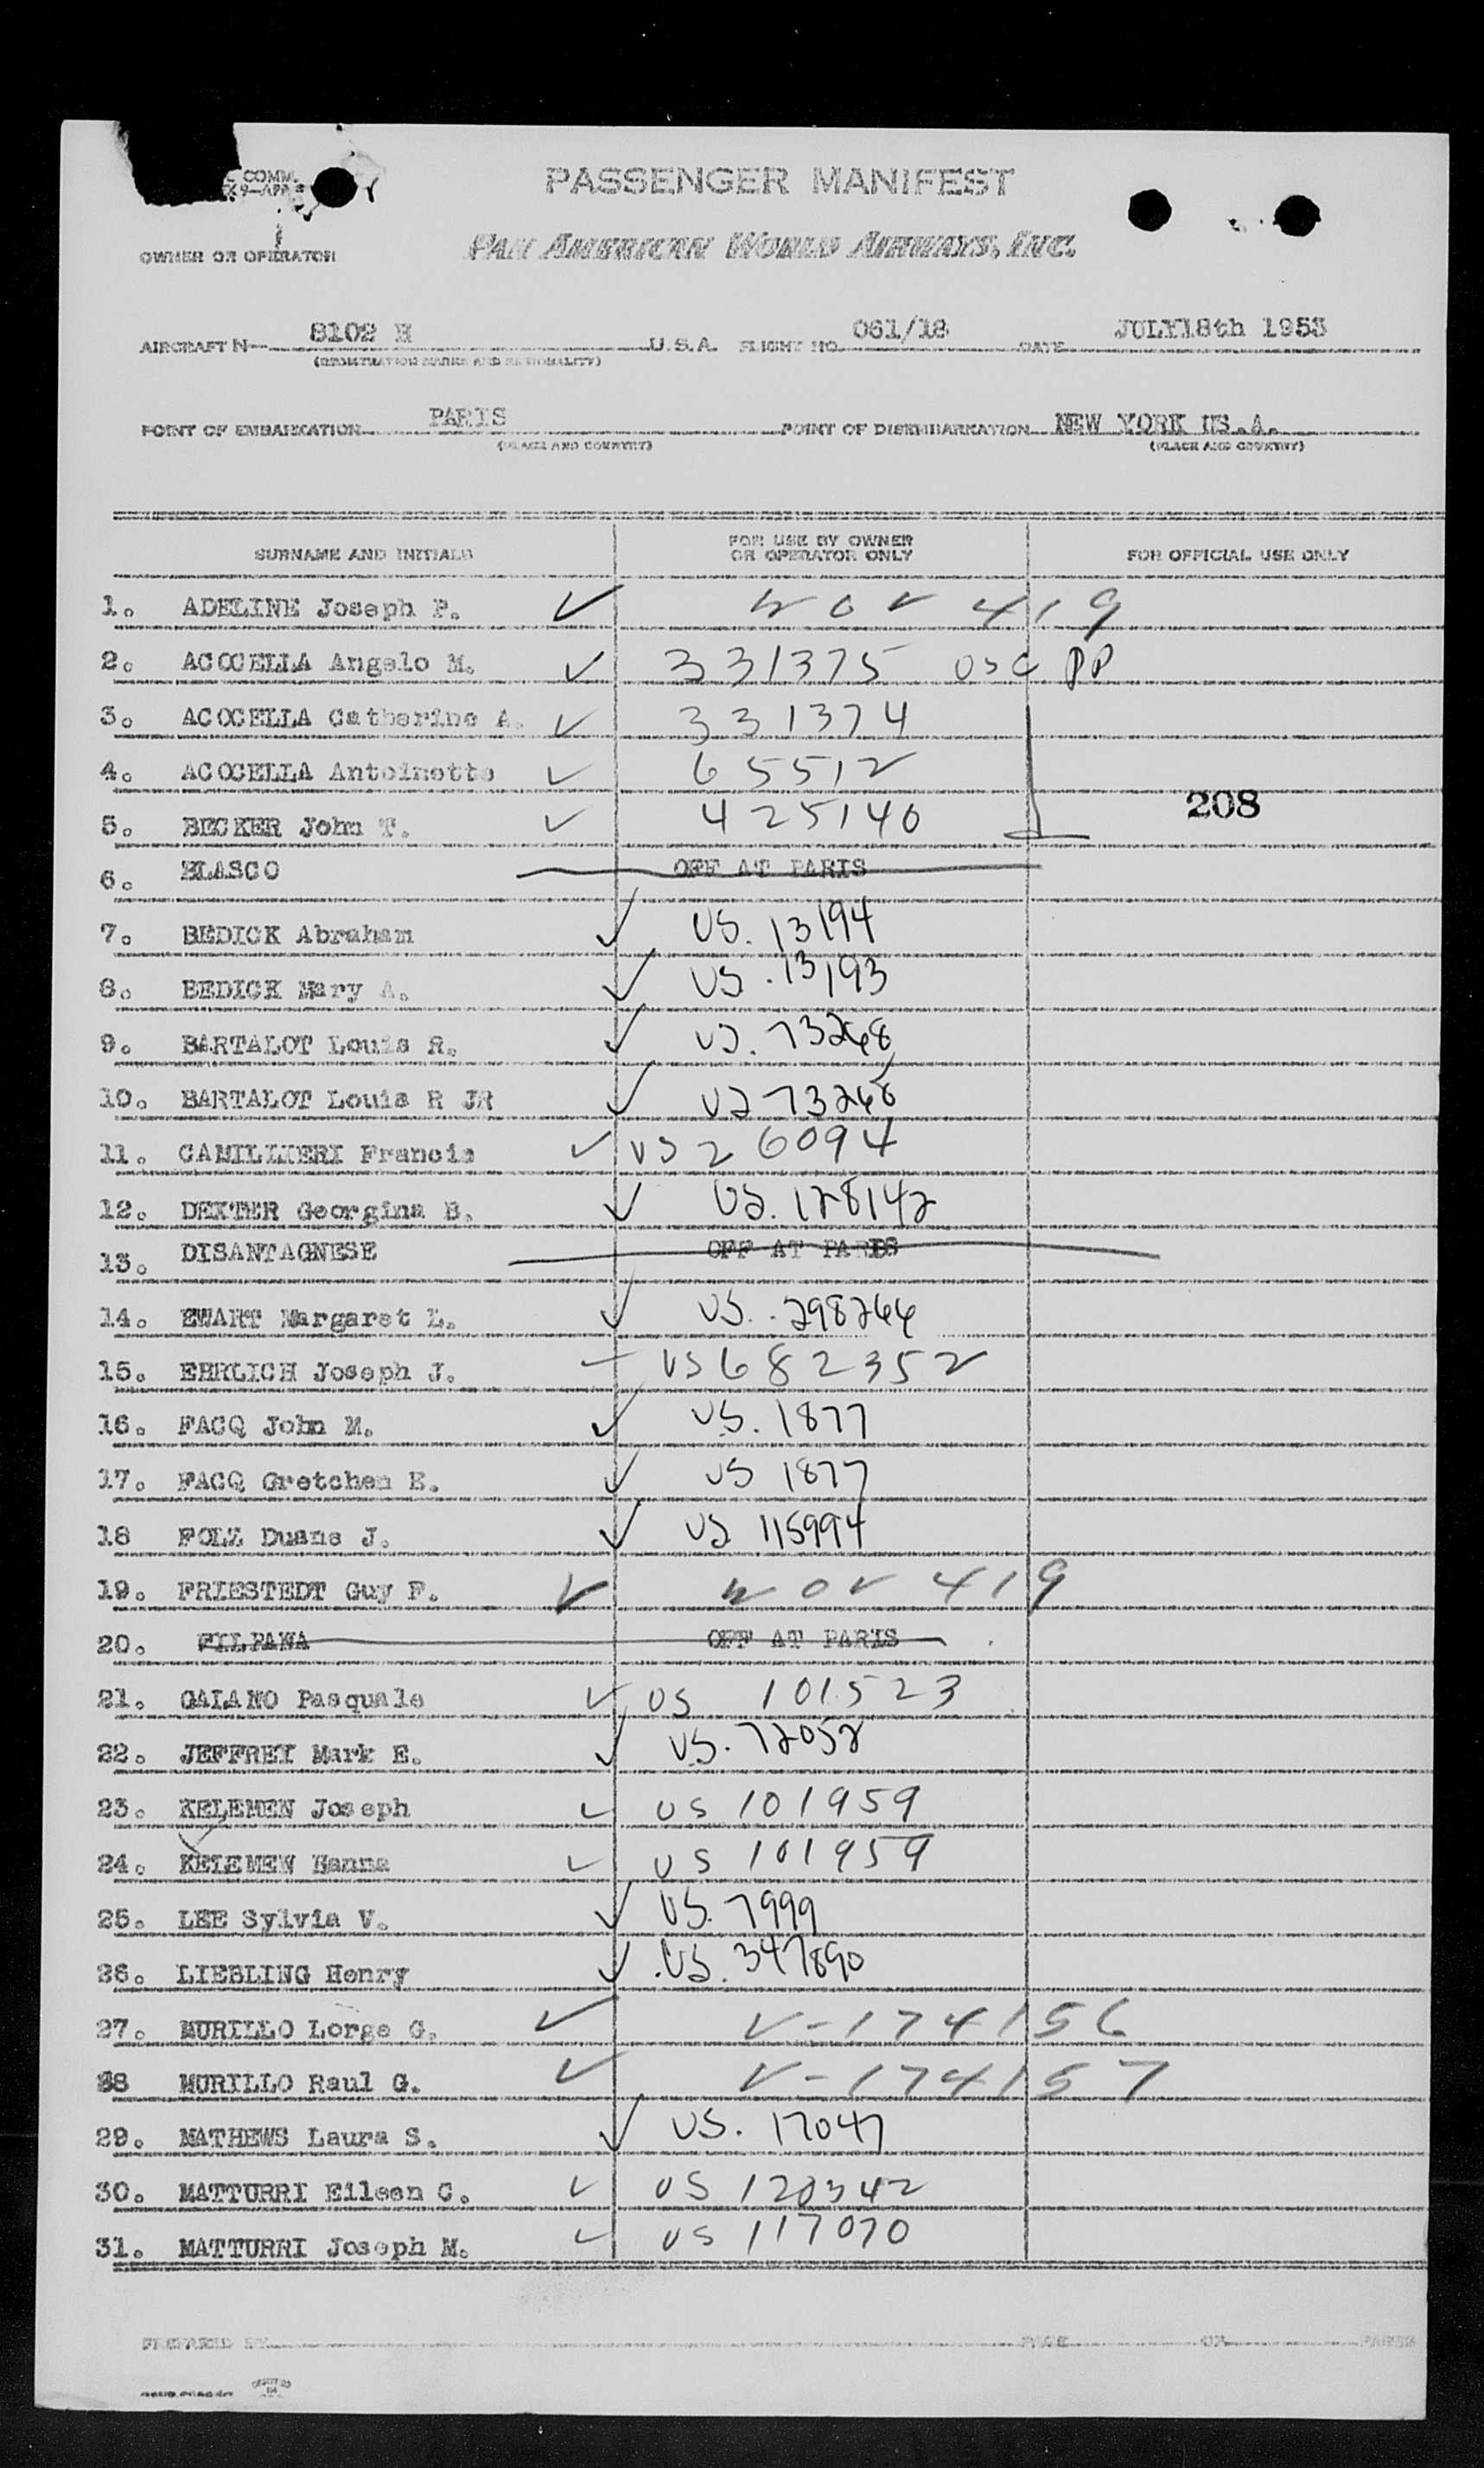 COMM.
PASSENGER MANIFEST
OWNER OR OPERATOR PAN AMERICAN WORLD AIRWAYS, INC.
AIRCRAFT N- 8102 H U.S.A. FLIGHT NO. 061/18 DATE JULY18th 1953
(REGISTRATION MARKS AND NATIONALITY)
POINT OF EMBARKATION PARIS POINT OF DISEMBARKATION NEW YORK US.A.
(PLACE AND COUNTRY) (PLACE AND COUNTRY)
SURNAME AND INITIALS FOR USE BY OWNER OR OPERATOR ONLY FOR OFFICIAL USE ONLY
1. ADELINE Joseph P. ✓ 419
2. ACOCELLA Angelo M. ✓ 331375 PP
3. ACOCELLA Catherine A. ✓ 331374
4. ACOCELLA Antoinette ✓ 65512
208
5. BECKER John T. ✓ 425140
6. BLASCO OFF AT PARIS
7. BEDICK Abraham ✓ US. 13194
8. BEDICK Mary A. ✓ US. 13193
9. BARTALOT Louis R. ✓ US. 73268
10. BARTALOT Louis R JR ✓ US 73268
11. CAMILLIERI Francis ✓ US 26094
12. DEXTER Georgina B. ✓ US. 128142
13. DISANTAGNESE OFF AT PARIS
14. EWART Margaret L. ✓ US. 298266
15. EHRLICH Joseph J. US 682352
16. FACQ John M. ✓ US. 1877
17. FACQ Gretchen E. ✓ US 1877
18 FOLZ Duane J. ✓ US 115994
19. FRIESTEDT Guy F. ✓ 419
20. FILPAWA OFF AT PARIS
21. GALANO Pasquale ✓ US 101523
22. JEFFREY Mark E. ✓ US. 72052
23. KELEMEN Joseph ✓ US 101959
24. KELEMEN Hanna ✓ US 101959
25. LEE Sylvia V. ✓ US. 7999
26. LIEBLING Henry ✓ US. 347890
27. MURILLO Lorge G. ✓ V-174156
28 MURILLO Raul G. ✓ V-174157
29. MATHEWS Laura S. ✓ US. 17047
30. MATTURRI Eileen C. ✓ US 120342
31. MATTURRI Joseph M. ✓ US 117070
PREPARED BY PAGE OF PAGES